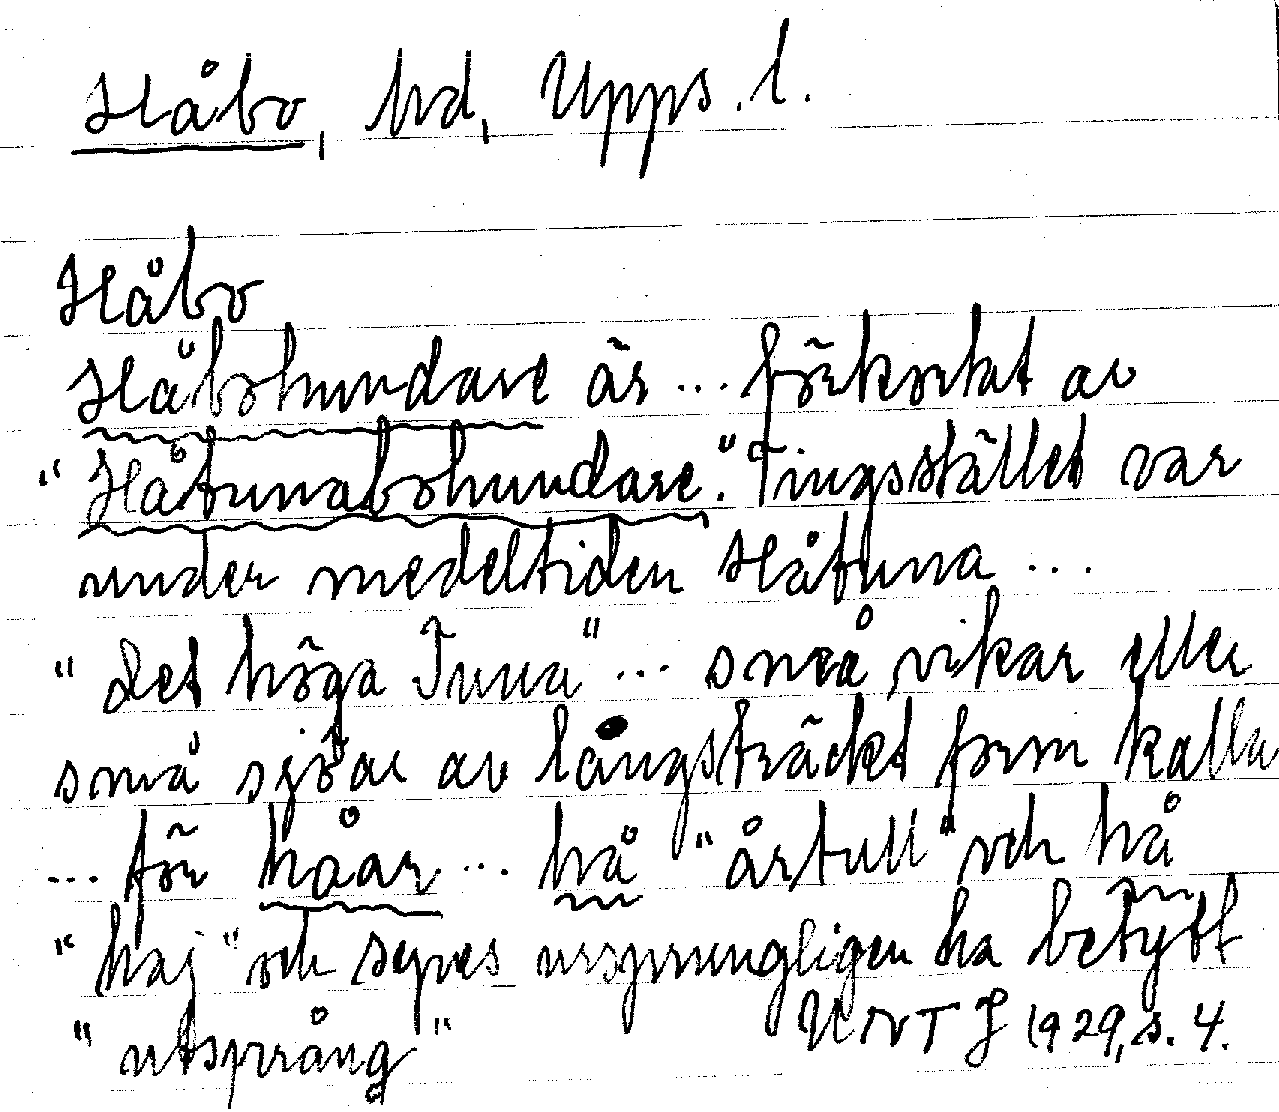 Håbo, hd, Upps. l.
Håbo
Håbohundare är ... förkortat av
"Håtunabohundare." Tingsstället var
under medeltiden Håtuna ...
"det höga Tuna" ... små vikar eller
små sjöar av långsträckt form kalla
... för håar ... hå "årtull" och hå
"haj" och synes ursprungligen ha betytt
"utsprång" UNT J 1929, s. 4.